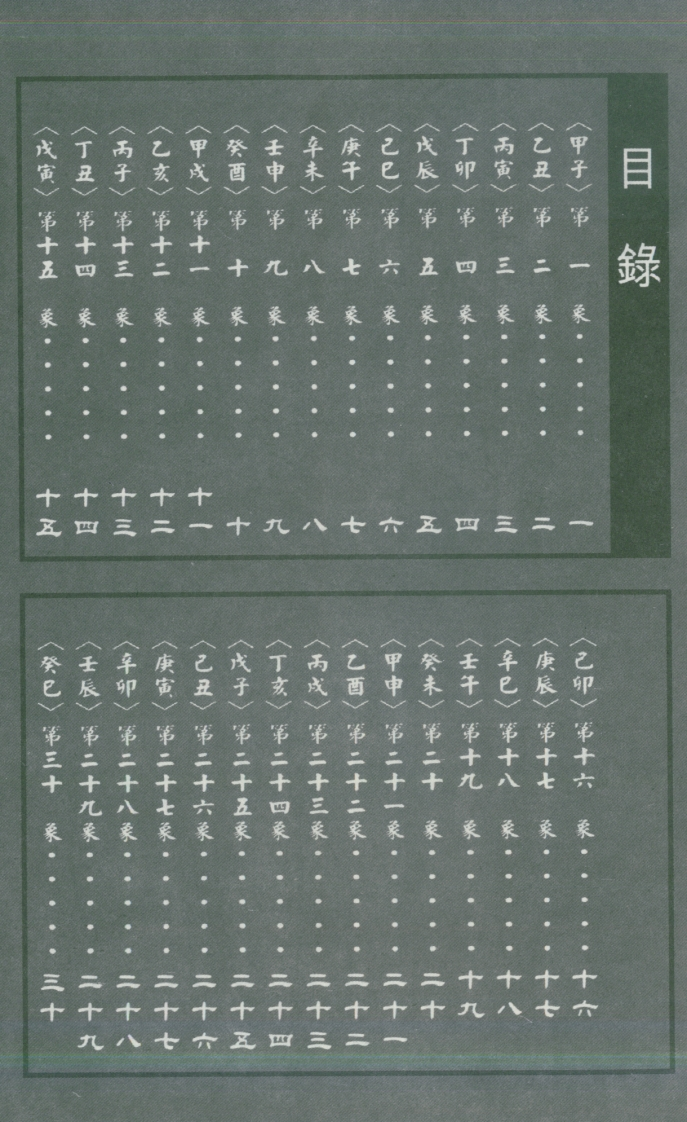 目錄
〈甲子〉第一象·····一
〈乙丑〉第二象·····二
〈丙寅〉第三象·····三
〈丁卯〉第四象·····四
〈戊辰〉第五象·····五
〈己巳〉第六象·····六
〈庚午〉第七象·····七
〈辛未〉第八象·····八
〈壬申〉第九象·····九
〈癸酉〉第十象·····十
〈甲戌〉第十一象·····十一
〈乙亥〉第十二象·····十二
〈丙子〉第十三象·····十三
〈丁丑〉第十四象·····十四
〈戊寅〉第十五象·····十五
〈己卯〉第十六象·····十六
〈庚辰〉第十七象·····十七
〈辛巳〉第十八象·····十八
〈壬午〉第十九象·····十九
〈癸未〉第二十象·····二十
〈甲申〉第二十一象·····二十一
〈乙酉〉第二十二象·····二十二
〈丙戌〉第二十三象·····二十三
〈丁亥〉第二十四象·····二十四
〈戊子〉第二十五象·····二十五
〈己丑〉第二十六象·····二十六
〈庚寅〉第二十七象·····二十七
〈辛卯〉第二十八象·····二十八
〈壬辰〉第二十九象·····二十九
〈癸巳〉第三十象·····三十